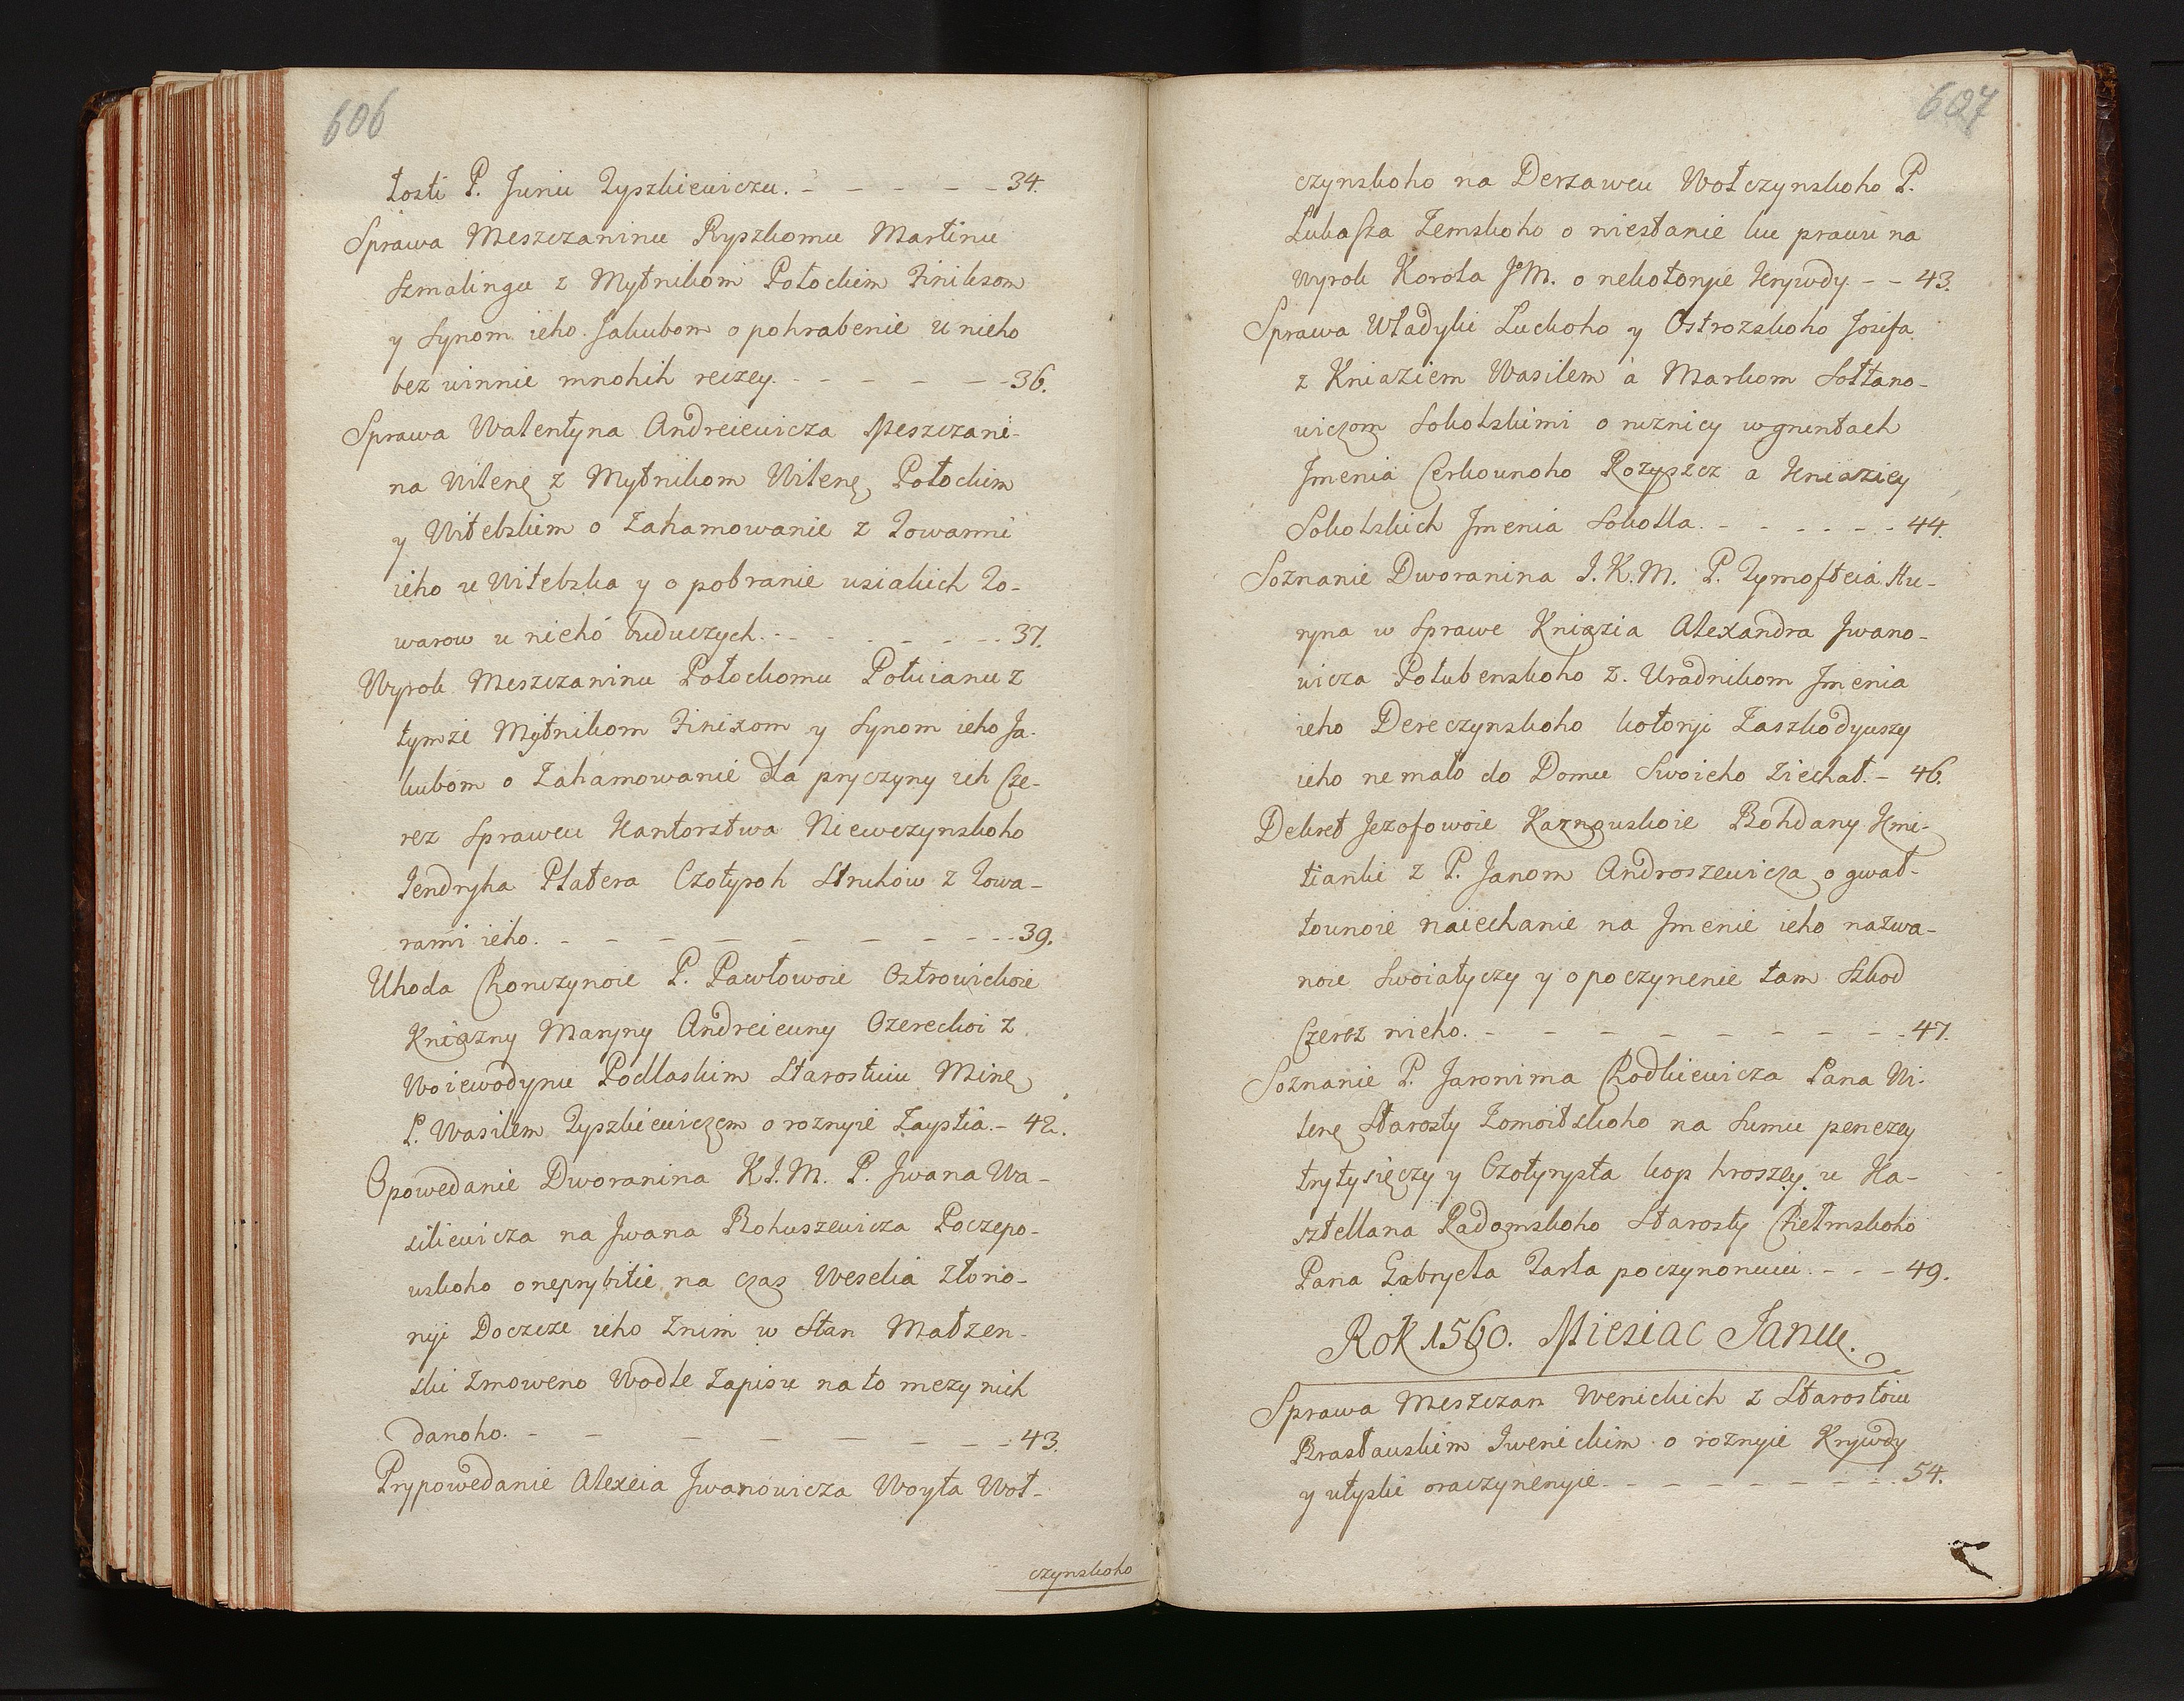 606
łosti P. Juriu Tyszkiewiczu. - - - - - 34.
Sprawa Meszczaninu Ryszkomu Martinu
Szmalingu z Mytnikom Połockim Finikzom
y Synom ieho Jakubom o pohrabenie u nieho
bez winnie mnohih reczey. - - - - - 36.
Sprawa Walentyna Andreiewicza Meszczani-
na Wilenę z Mytnikom Wilenę, Połockim
y Witebskim o Zahamowanie z Towarmi
ieho u Witebska y o pobranie usiakich To-
warow u nieho buduczych. - - - - - 37.
Wyrok Meszczaninu Połockomu Połuianu z
tymże Mytnikom Finixom y Synom ieho Ja-
kubom o Zahamowanie dla pryczyny ich Cze-
rez Sprawcu Kantorstwa Niewczynskoho
Jendryha Platera Czotyroh Struhow z Towa-
rami ieho. - - - - - - - 39.
Uhoda Chonczynoie P. Pawłowoie Ostrowickoie
Kniazny Maryny Andreiewny Ozereckoi z
Woiewodynu Podlaskim Starostoiu Minę
P. Wasilem Tyszkiewiczem o roznyie Zaystia. - 42.
Opowedanie Dworanina K.J.M. P. Jwana Wa-
silewicza na Jwana Bohuszewicza Poczepo-
uskoho o neprybitie na czas Weselia Złono-
nyi Doczcze ieho Znim w Stan Małzen-
ski Zmoweno Wodle Zapisu na to mezy nich
danoho. - - - - - - - 43.
Prypowedanie Alexeia Jwanowicza Woyta Woł-
czynskoho
607
czynskoho na Derzawcu Wołczynskoho P.
Lukasza Zemskoho o niestanie ku prawu na
Wyrok Korola JoM. o nekotoryie Krywdy - - 43.
Sprawa Władyki Luckoho y Ostrozskoho Josifa
z Kniaziem Wasilem a Markom Sołtano-
wiczom Sokolskimi o rznicy w gruntach
Jmenia Cerkounoho Rozyszcz a Kniaziey
Sokolskich Jmenia Sokolla. - - - - - 44.
Soznanie Dworanina J.K.M. P. Tymofteia Hu-
ryna w Sprawe Kniazia Alexandra Jwano-
wicza Połubenskoho z Uradnikom Jmenia
ieho Dereczynskoho kotoryi Zaszkodywszy
ieho nemało do Domu Swoieho Ziechał. - 46.
Dekret Jezofowoie Kaznouskoie Bohdany Kmi-
tianki z P. Janom Androszewicza o gwał-
tounoie naiechanie na Jmenie ieho nazwa-
noie Swoiatyczy y o poczynenie tam Szkod
Czerez nieho. - - - - - - - 47.
Soznanie P. Jaronima Chodkiewicza Pana Wi-
lenę Starosty Zomoitskoho na Sumu penezey
trytysięczy y Czotyrysta kop hroszey u Ka-
sztellana Radomskoho Starosty Chełmskoho
Pana Gabryela Tarła poczynonuiu. - - - 49.
Rok 1560. Miesiac Janu.
Sprawa Meszczan Wenickich z Starostoiu
Brasłauskim Jwenickim o roznyie Krywdy
y utyski oraczynenyie. - - - - - - 54.